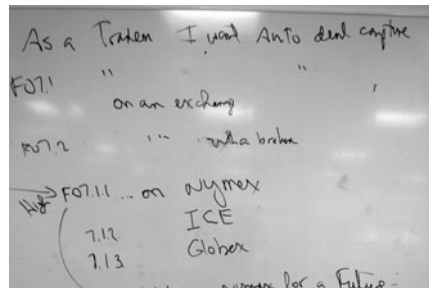 As a Trader I want Auto deal capture
F07.1 " "
on an exchang
F07.2 " with a broker
High F07.1.1 ... on Nymex
7.1.2 ICE
7.1.3 Globex
nymex for a Future